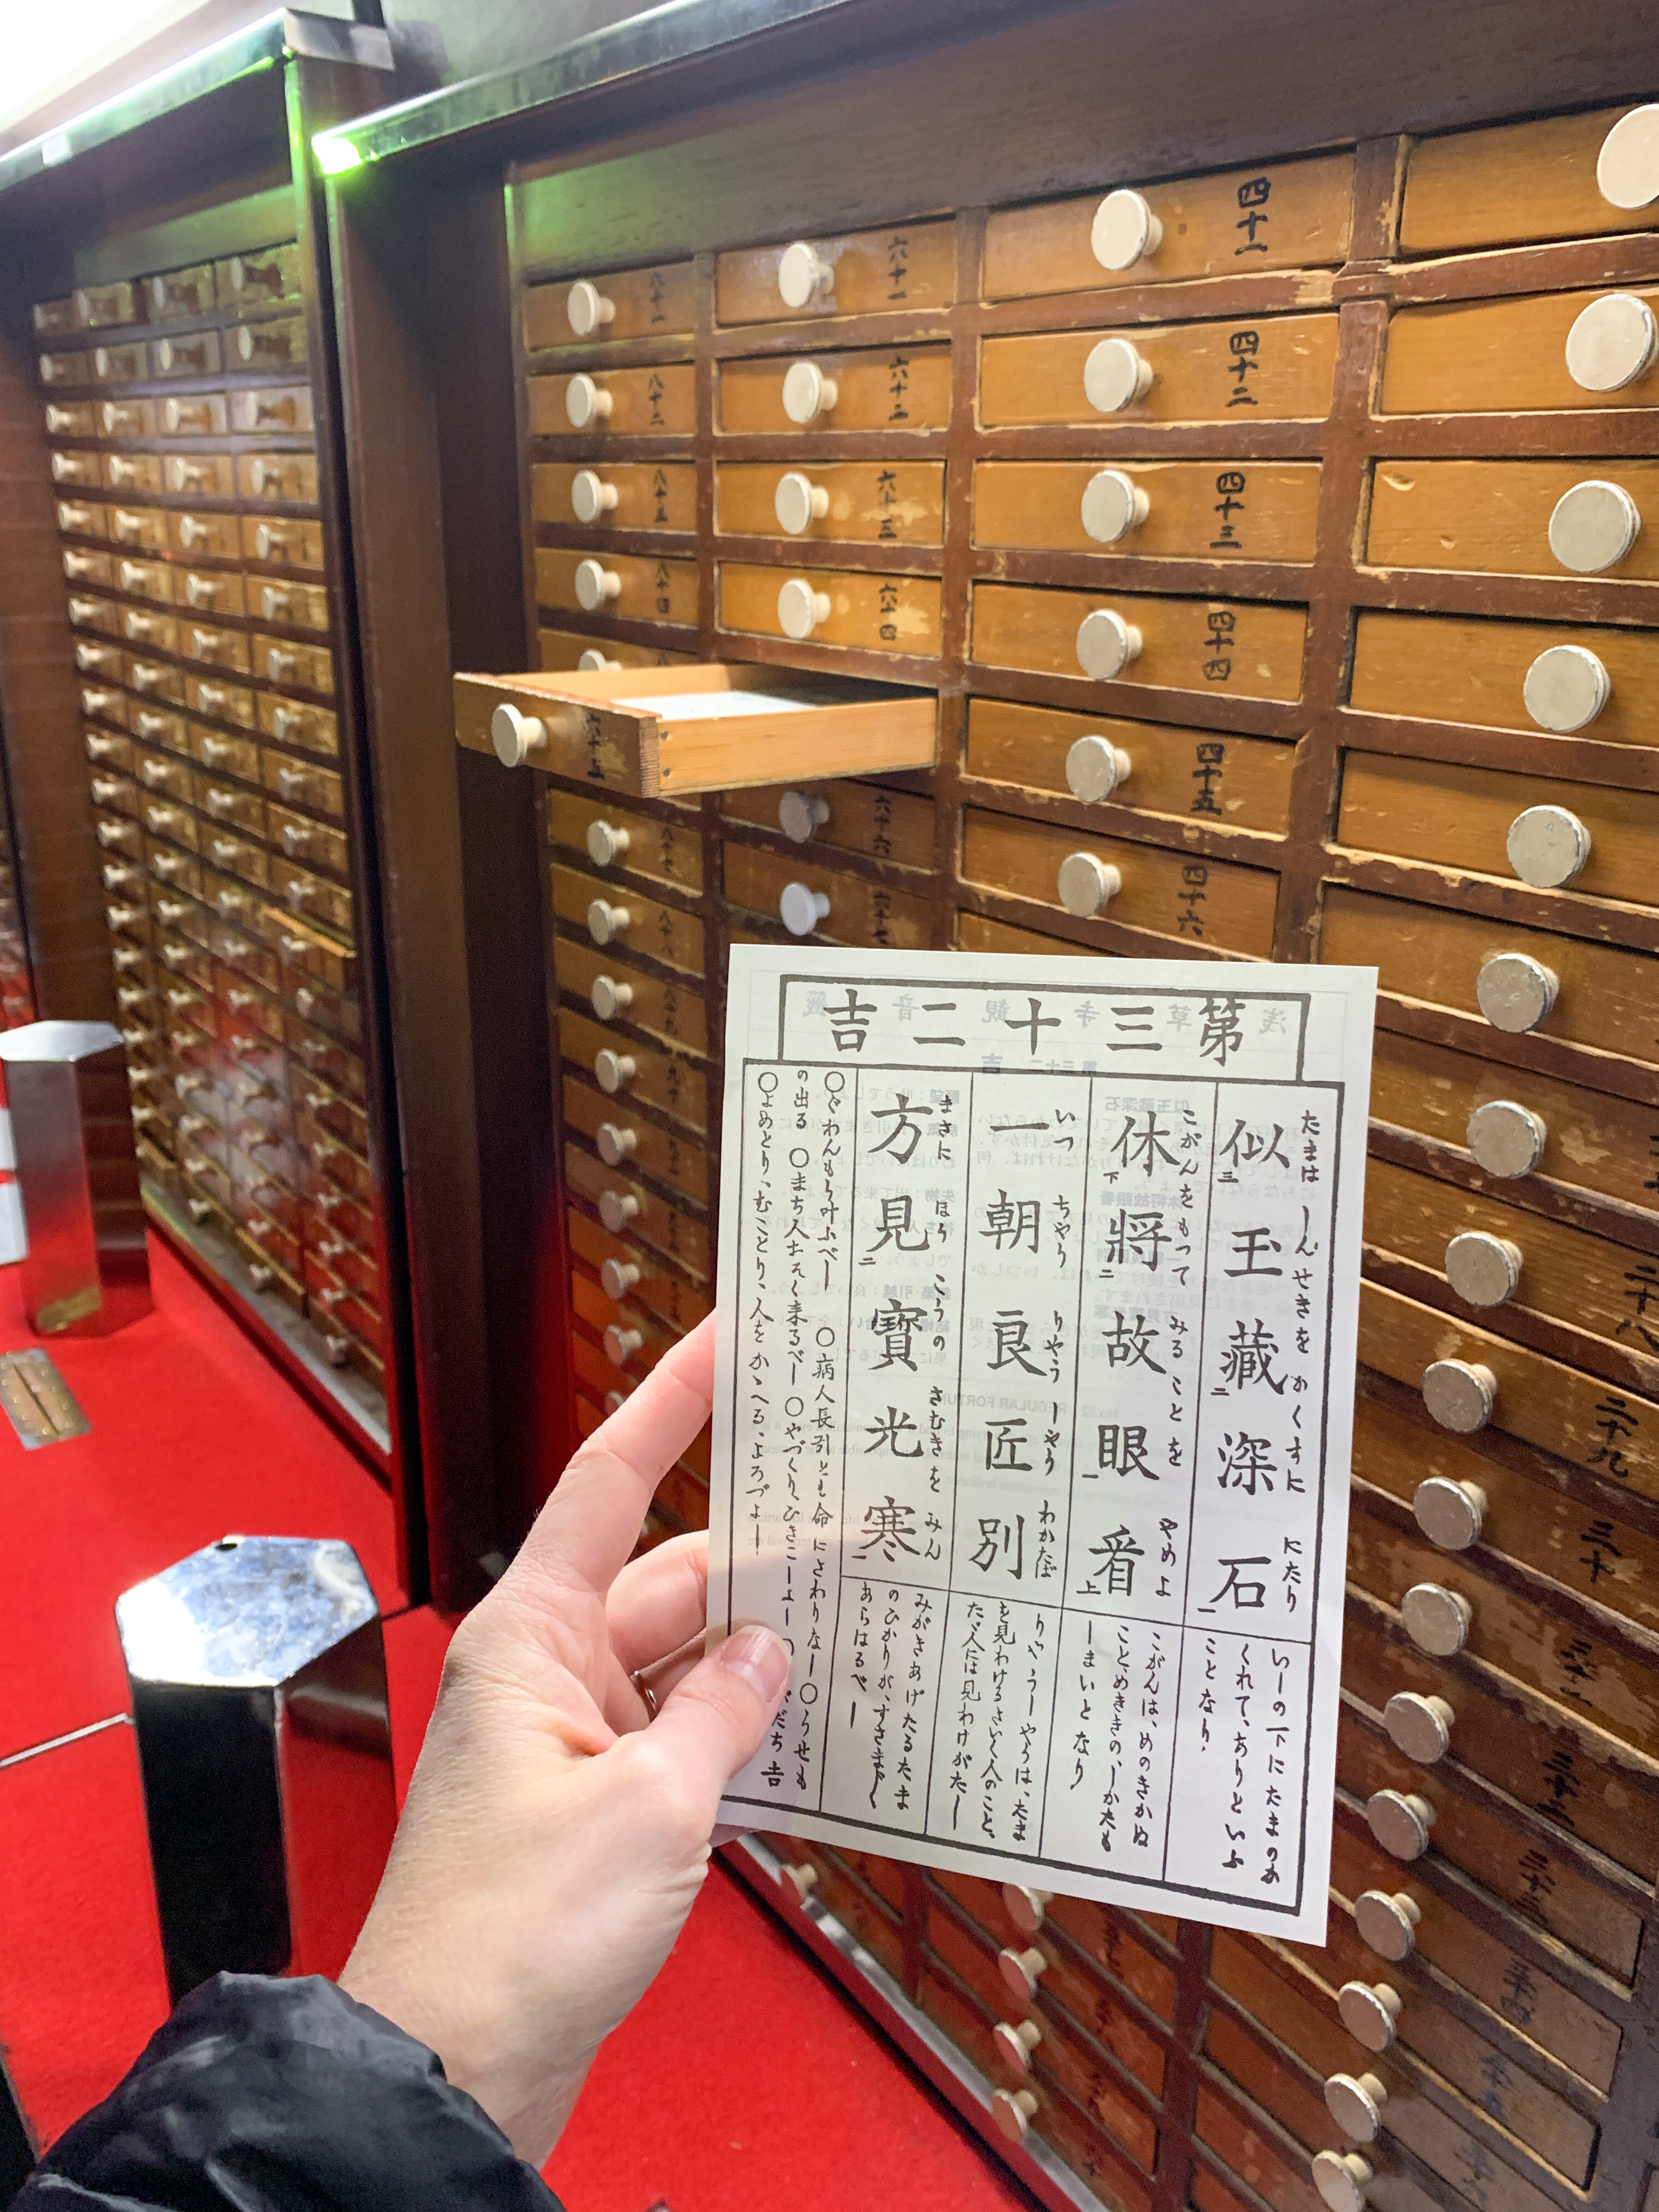 第三十二吉
似玉藏深石
たまは しんせきを かくすに にたり
いしの下にたまのか
くれて、ありといふ
ことなり、
休將故眼看
こがんをもつて みることを やめよ
こがんは、めのきかぬ
こと、めききの、しかたも
しまいとなり
一朝良匠別
いつ ちやう りやう しやう わかたば
りやうしやうは、たま
を見わけるさいく人のこと、
たゞ人には見わけがたし
方見寶光寒
まさに ほう こうの さむきを みん
みがきあげたるたま
のひかりが、すさまじく
あらはるべし
○ぐわんもう叶ふべし ○病人長引とも命にさわりなし ○うせも
の出る ○まち人おそく来るべし ○やづくり、ひきこしよし
だち吉
○よめとり、むことり、人をかゝへる、よろづよし
四十一
四十二
四十三
四十四
四十五
四十六
六十一
六十二
六十三
六十四
六十五
六十六
六十七
八十一
八十二
八十三
八十四
八十七
八十八
八十九
二十八
二十九
三十
三十一
三十二
三十三
三十四